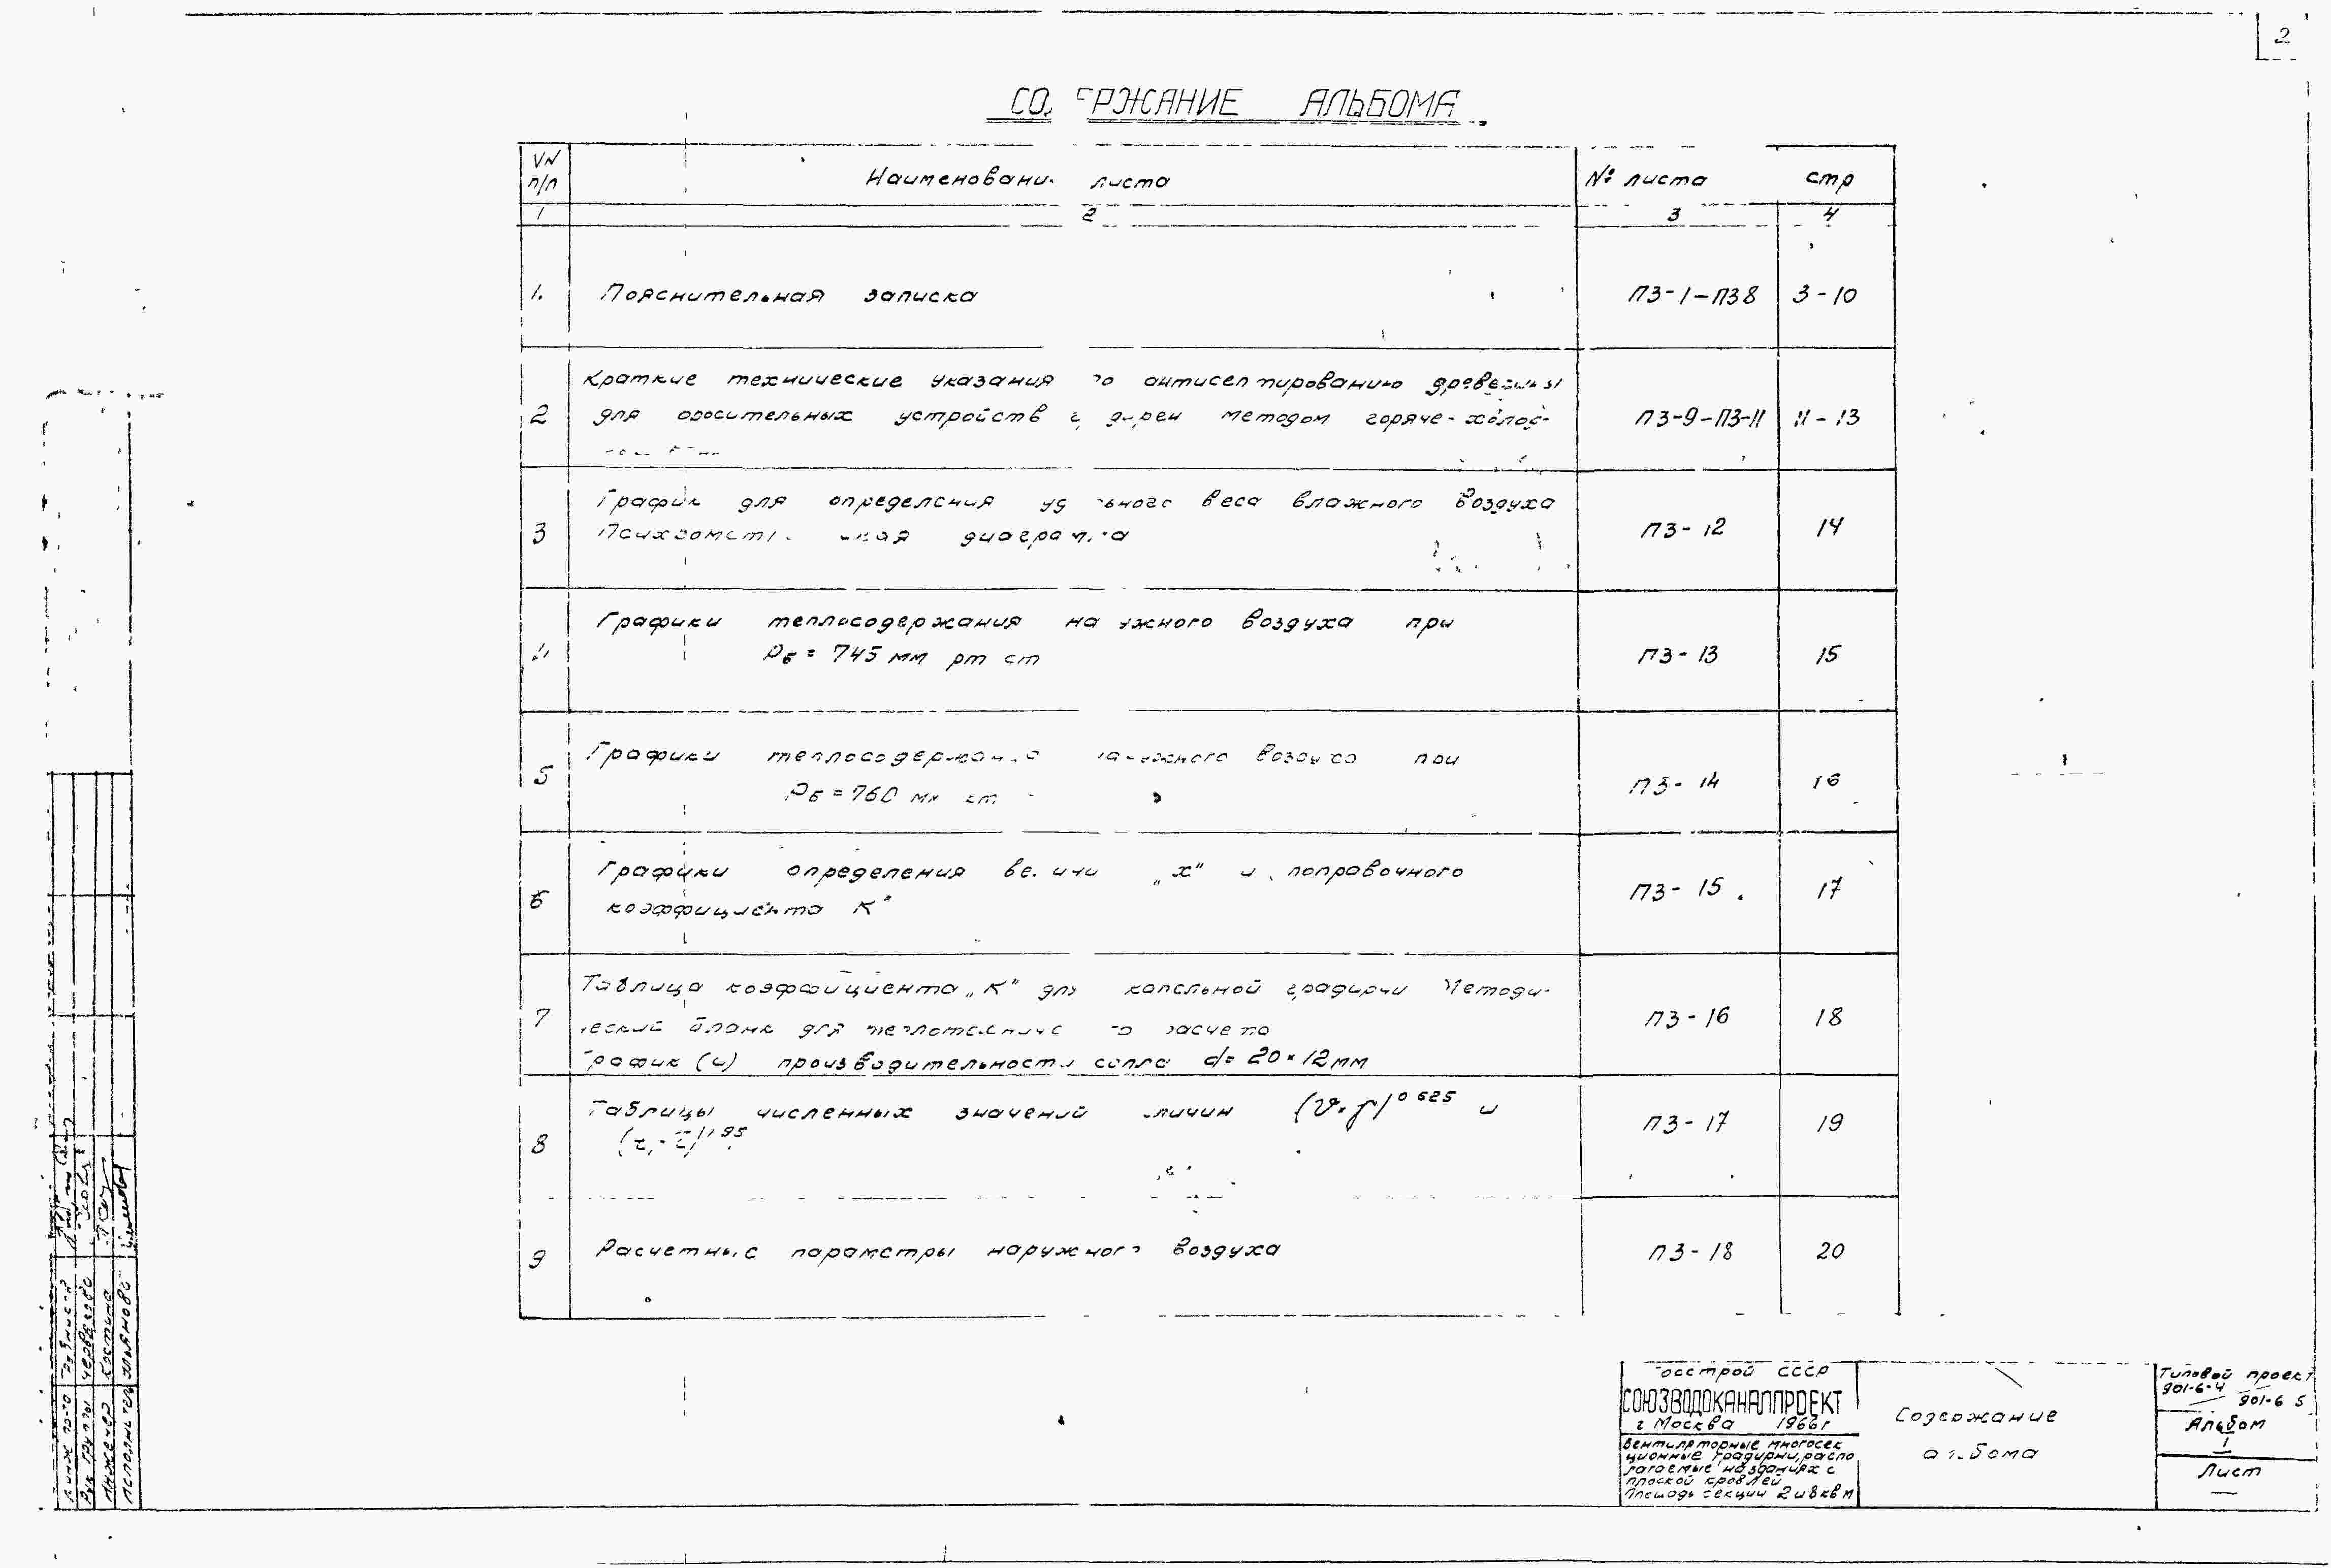 2
СОДЕРЖАНИЕ АЛЬБОМА
NN п/п Наименование листа № листа стр
1 2 3 4
1. Пояснительная записка ПЗ-1-ПЗ8 3-10
Краткие технические указания по антисептированию древесины
2 для оросительных устройств методом горяче-холод- ПЗ-9-ПЗ-11 11-13
График для определения удельного веса влажного воздуха
3 Психрометрическая диаграмма ПЗ-12 14
Графики теплосодержания наружного воздуха при
4 Рб = 745 мм рт ст ПЗ-13 15
Графики теплосодержания наружного воздуха при
5 Рб = 760 мм ст ПЗ-14 16
Графики определения величин „х" и поправочного
6 коэффициента К" ПЗ-15 17
Таблица коэффициента „К" для капельной градирни Методи-
7 ческий бланк для теплотехнического расчета ПЗ-16 18
График (и) производительности сопла d= 20×12мм
Таблицы численных значений величин 0 625 и
8 1 95 ПЗ-17 19
9 Расчетные параметры наружного воздуха ПЗ-18 20
Госстрой СССР
СОЮЗВОДОКАНАЛПРОЕКТ
г Москва 1966г
Вентиляторные многосек
ционные градирни, распо
лагаемые на зданиях с
плоской кровлей
Площадь секции 2 и 8 кв м
Содержание
альбома
Типовой проект
901-6-4
901-6 5
Альбом
I
Лист
—
Рук группы
Инженер Костина
Исполнитель